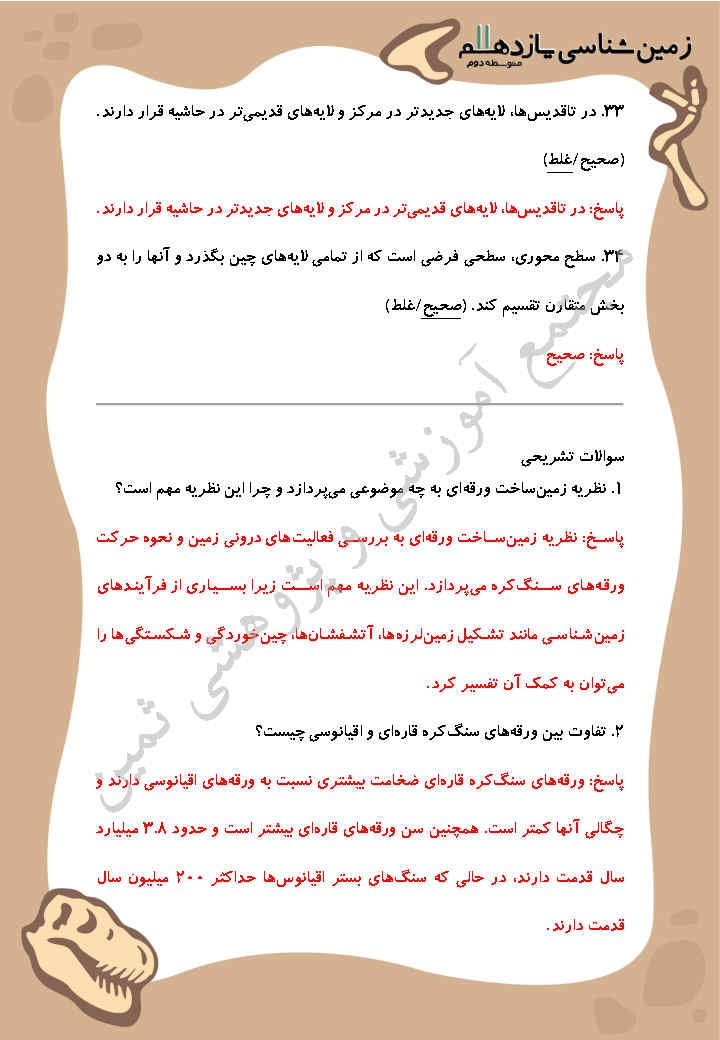 زمین‌شناسی یازدهم
متوسطه دوم
۳۳. در تاقدیس‌ها، لایه‌های جدیدتر در مرکز و لایه‌های قدیمی‌تر در حاشیه قرار دارند.
(صحیح/غلط)
پاسخ: در تاقدیس‌ها، لایه‌های قدیمی‌تر در مرکز و لایه‌های جدیدتر در حاشیه قرار دارند.
۳۴. سطح محوری، سطحی فرضی است که از تمامی لایه‌های چین بگذرد و آنها را به دو
بخش متقارن تقسیم کند. (صحیح/غلط)
پاسخ: صحیح
سوالات تشریحی
۱. نظریه زمین‌ساخت ورقه‌ای به چه موضوعی می‌پردازد و چرا این نظریه مهم است؟
پاسخ: نظریه زمین‌ساخت ورقه‌ای به بررسی فعالیت‌های درونی زمین و نحوه حرکت
ورقه‌های سنگ‌کره می‌پردازد. این نظریه مهم است زیرا بسیاری از فرآیندهای
زمین‌شناسی مانند تشکیل زمین‌لرزه‌ها، آتشفشان‌ها، چین‌خوردگی و شکستگی‌ها را
می‌توان به کمک آن تفسیر کرد.
۲. تفاوت بین ورقه‌های سنگ‌کره قاره‌ای و اقیانوسی چیست؟
پاسخ: ورقه‌های سنگ‌کره قاره‌ای ضخامت بیشتری نسبت به ورقه‌های اقیانوسی دارند و
چگالی آنها کمتر است. همچنین سن ورقه‌های قاره‌ای بیشتر است و حدود ۳.۸ میلیارد
سال قدمت دارند، در حالی که سنگ‌های بستر اقیانوس‌ها حداکثر ۲۰۰ میلیون سال
قدمت دارند.
مجتمع آموزشی و پژوهشی ثمین